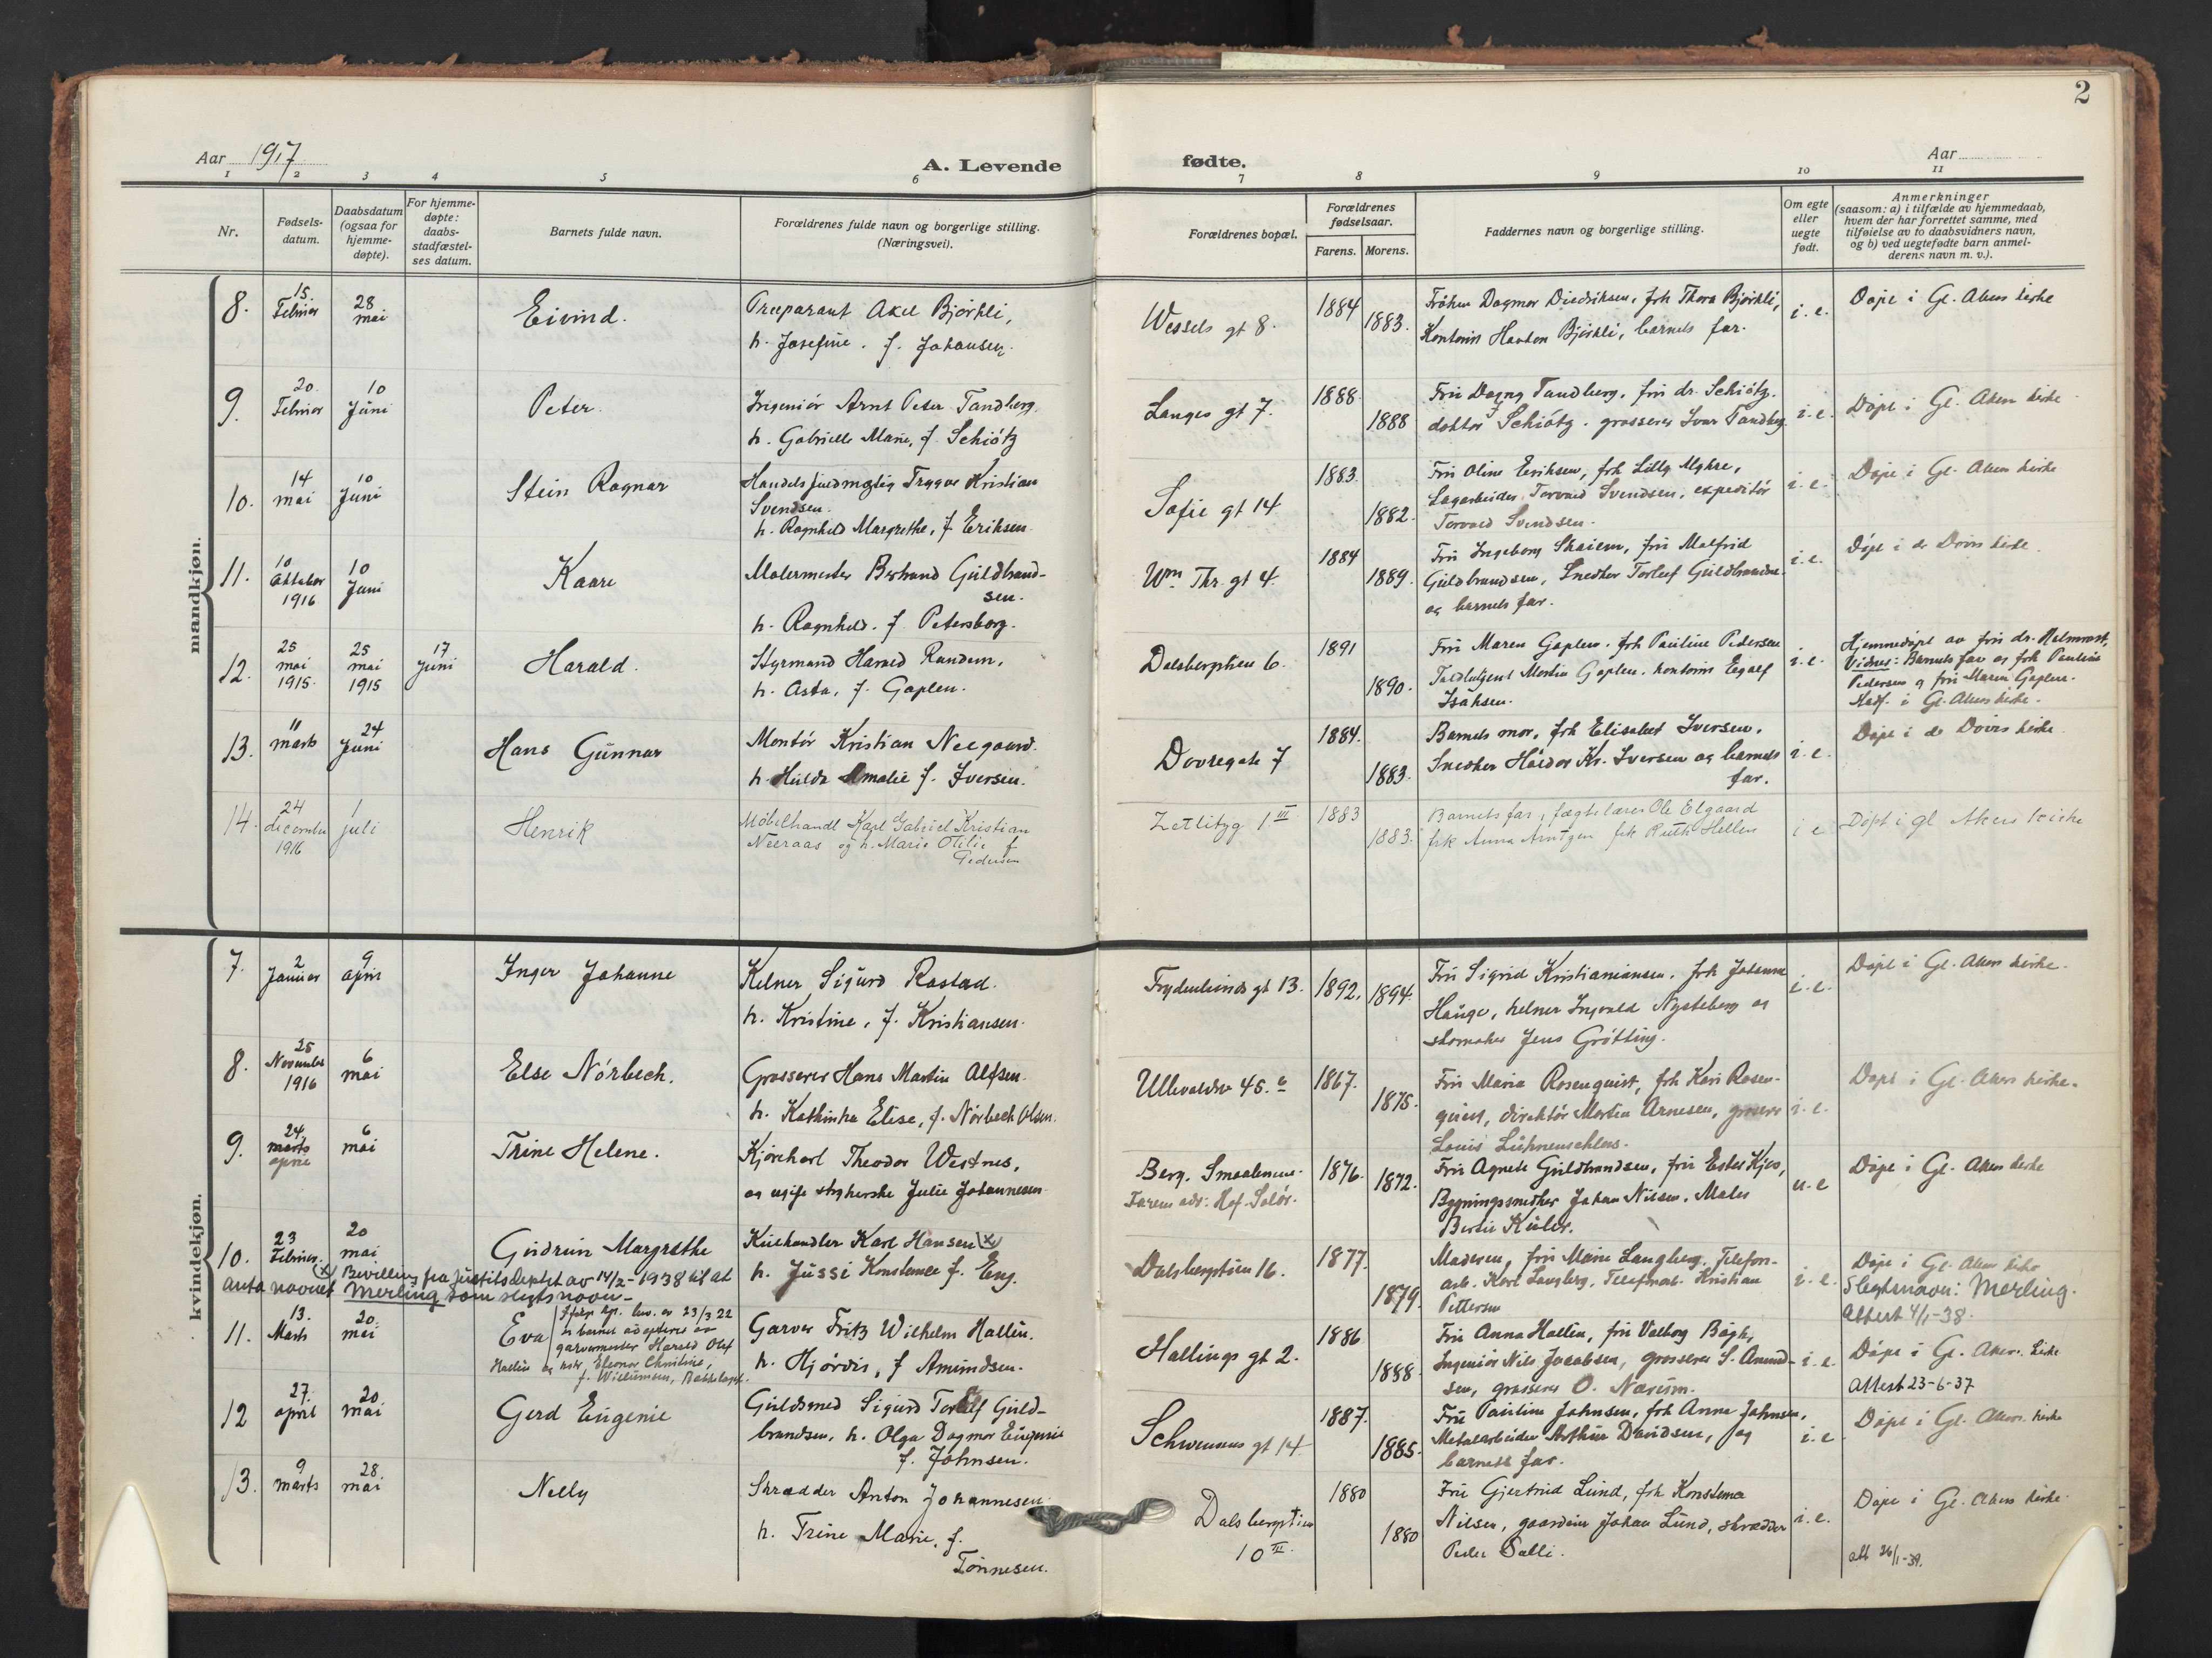 2
Aar 1917
A. Levende
fødte.
Aar
1 2 3 4 5 6 7 8 9 10 11
Nr.
Fødsels-
datum.
Daabsdatum
(ogsaa for
hjemme-
døpte).
For hjemme-
døpte:
daabs-
stadfæstel-
ses datum.
Barnets fulde navn.
Forældrenes fulde navn og borgerlige stilling.
(Næringsvei).
Forældrenes bopæl.
Forældrenes
fødselsaar.
Farens. Morens.
Faddernes navn og borgerlige stilling.
Om egte
eller
uegte
født.
Anmerkninger
(saasom: a) i tilfælde av hjemmedaab,
hvem der har forrettet samme, med
tilføielse av to daabsvidners navn,
og b) ved uegtefødte barn anmel-
derens navn m. v.).
mandkjøn.
8.
15.
Februar
28
mai
Eivind.
Præparant Axel Bjørkli,
h. Josefine. f. Johansen.
Wessels gt 8.
1884
1883.
Frøken Dagmar Diedriksen, frk Thora Bjørkli,
Kontorist Haakon Bjørkli, barnets far.
i. e.
Døpt i Gl. Akers kirke
9.
20.
Februar
10
Juni
Peter.
Ingeniør Arnt Peter Tandberg.
h. Gabrielle Marie, f. Schiøtz
Langes gt 7.
1888.
1888
Fru Dagny Tandberg, fru dr. Schiøtz.
doktor Schiøtz. grosserer Ivar Tandberg.
i. e.
Døpt i Gl. Akers kirke
10.
14
mai
10
Juni
Stein Ragnar
Handelsfuldmægtig Trygve Kristian
Svendsen.
h. Ragnhild Margrethe, f Eriksen
Sofie gt 14
1883.
1882.
Fru Oline Eriksen, frk Lilly Myhre,
Lagarbeider Torvald Svendsen, expeditør
Torvald Svendsen.
i. e.
Døpt i Gl. Akers kirke
11.
10
Oktober
1916
10
Juni
Kaare
Malermester Guldbrand-
sen.
h. Ragnhild. f Petersborg.
Wm Thr. gt 4.
1884
1889.
Fru Ingeborg Skaiem, fru Malfrid
Guldbrandsen, Snedker Torleif Guldbrandsen
og barnets far.
i. e.
Døpt i de Døves kirke
12.
25
mai
1915.
25
mai
1915
17
juni
Harald.
Styrmand Harald Randem,
h. Asta, f. Gaplen.
Dalsbergstien 6.
1891
1890.
Fru Maren Gaplen. frk Pauline Pedersen
Martin Gaplen. kontorist
Isaksen.
i. e.
Hjemmedøpt av fru dr.
Vidner: Barnets far og frk Pauline
Pedersen og fru Maren Gaplen.
Stadf. i Gl. Akers kirke.
13.
11
marts
24
Juni
Hans Gunnar
Montør Kristian Neegaard.
h. Hulda Amalie f. Iversen.
Dovregate 7
1884.
1883.
Barnets mor, frk Elisabet Iversen.
Snedker Haldor Kr. Iversen og barnets
far.
i. e.
Døpt i de Døves kirke
14.
24
december
1916
1
juli
Henrik
Møbelhandl Karl Gabriel Kristian
Neeraas og h. Marie Otilie f
Pedersen
Zetlitzg 1 III
1883
1883.
Barnets far, fægtelærer Ole Elgaard
frk Anna Arntzen frk Ruth Hellen
i e
Døpt i gl Akers kirke
kvindekjøn.
7.
2
Januar
9
april
Inger Johanne
Kelner Sigurd Rostad.
h. Kristine, f. Kristiansen.
Frydenlunds gt 13.
1892.
1894.
Fru Sigrid Kristianiansen. frk Johanne
Hauge, kelner Ingvald Nysteberg og
skomaker Jens Grøtting.
i. e.
Døpt i Gl. Akers kirke.
8.
25
November
1916
6
mai
Else Nørbech.
Grosserer Hans Martin Alfsen.
h. Kathinka Elise, f. Nørbech Olsen.
Ullevaldsv 45. c
1867.
1875.
Fru Maria Rosenquist, frk Kari Rosen-
quist, direktør Martin Arnesen, grosserer
Louis
i. e.
Døpt i Gl. Akers kirke.
9.
24.
marts
april
6
mai
Trine Helene.
Kjørekarl Theodor Westnes,
og ugift strykerske Julie Johannesen
Berg. Smaalenene.
Farens adr: Hof. Solør.
1876.
1872.
Fru Agnete Guldbrandsen, fru Ester Kjos,
Bygningssnedker Johan Nilsen. Maler
u. e
Døpt i Gl. Akers kirke
10.
23
Februar.
20
mai
Gudrun Margrethe
Kulhandler Karl Hansen (x)
h. Jussi Konstance f. Eng.
(x) Bevilling fra Justitsdeptet av 14/2-1938 til at
anta navnet Merling som slegtsnavn-
Dalsbergstien 16.
1877.
1879.
Maderen, fru Marie Langberg. Telefon-
arb. Karl Langberg, Telefonarb. Kristian
Pettersen
i. e.
Døpt i Gl. Akers kirke
Slegtsnavn: Merling.
Attest 4/1-38.
11.
13.
Marts
20.
mai
Eva
Ifølge kgl. bev. av 23/3 22
er barnet adopteret av
garvermester Harald Olaf
Hallén og hstr, Eleonor Christine,
f. Willumsen,
Garver Fritz Wilhelm Hallén.
h. Hjørdis, f Amundsen.
Hallings gt 2.
1886
1888.
Fru Anna Hallén, fru Valborg Bøgh,
Ingeniør Nils Jacobsen, grosserer S. Amund-
sen, grosserer O. Narum.
i. e.
Døpt i Gl. Akers. kirke
Attest 23-6-37
12
27.
april
20.
mai
Gerd Eugenie
Guldsmed Sigurd Guld-
brandsen, h. Olga Dagmar Eugenie
f. Johnsen.
Schwensens gt 14
1887.
1885.
Fru Pauline Johnsen, frk Anna Johnsen,
Metalarbeider Arthur Davidsen, og
barnets far.
i. e.
Døpt i Gl. Akers. kirke
13.
9
marts
28.
mai
Nelly
Skrædder Anton Johannesen.
h. Trine Marie, f.
Tønnesen.
Dalsbergstien
10 III.
1880
1880
Fru Gjertrud Lund, frk Konstance
Nilsen, gaardeier Johan Lund, skrædder
Peder Dalli.
i. e.
Døpt i Gl. Akers kirke.
att 26/1-39.